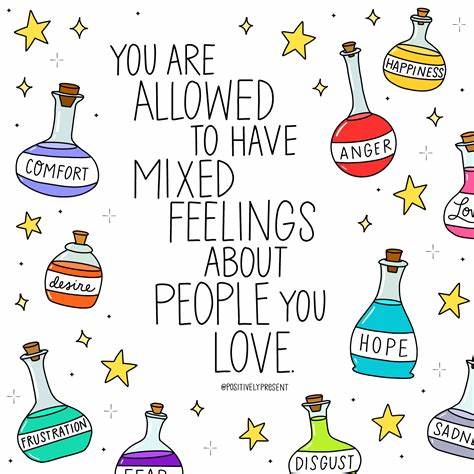 YOU ARE
ALLOWED
TO HAVE
MIXED
FEELINGS
ABOUT
PEOPLE YOU
LOVE.
@POSITIVELYPRESENT
HAPPINESS
COMFORT
ANGER
desire
HOPE
FRUSTRATION
DISGUST